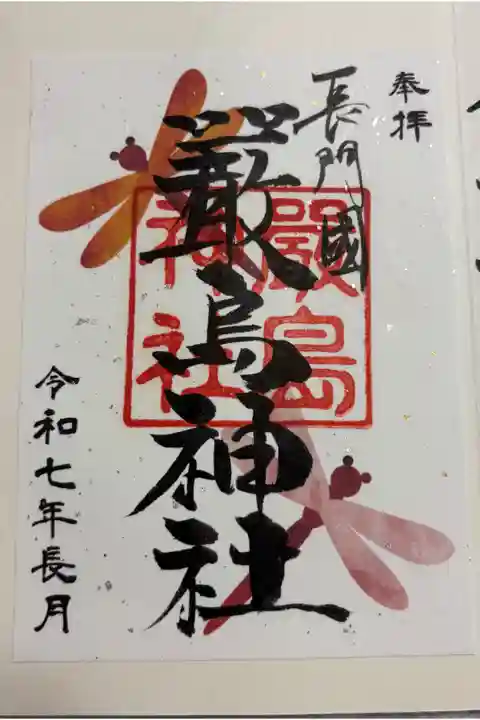 奉拝
長門國
厳島神社
嚴島神社
令和七年長月